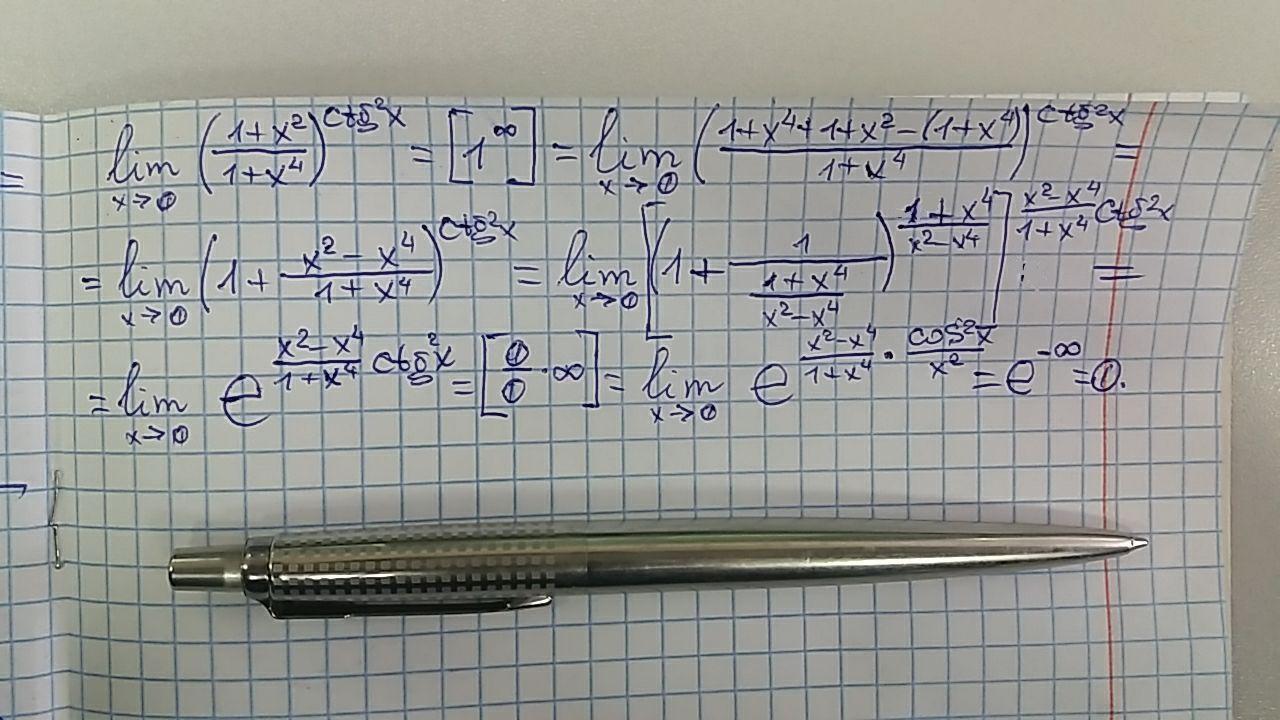 lim x→0 ((1+x²)/(1+x⁴))^(ctg²x) = [1^∞] = lim x→0 ((1+x⁴+1+x²-(1+x⁴))/(1+x⁴))^(ctg²x) =
= lim x→0 (1+(x²-x⁴)/(1+x⁴))^(ctg²x) = lim x→0 [(1+1/((1+x⁴)/(x²-x⁴)))^((1+x⁴)/(x²-x⁴))]^((x²-x⁴)/(1+x⁴) ctg²x) =
= lim x→0 e^((x²-x⁴)/(1+x⁴) ctg²x) = [0/0·∞] = lim x→0 e^((x²-x⁴)/(1+x⁴) · cos²x/x²) = e^(-∞) = 0.